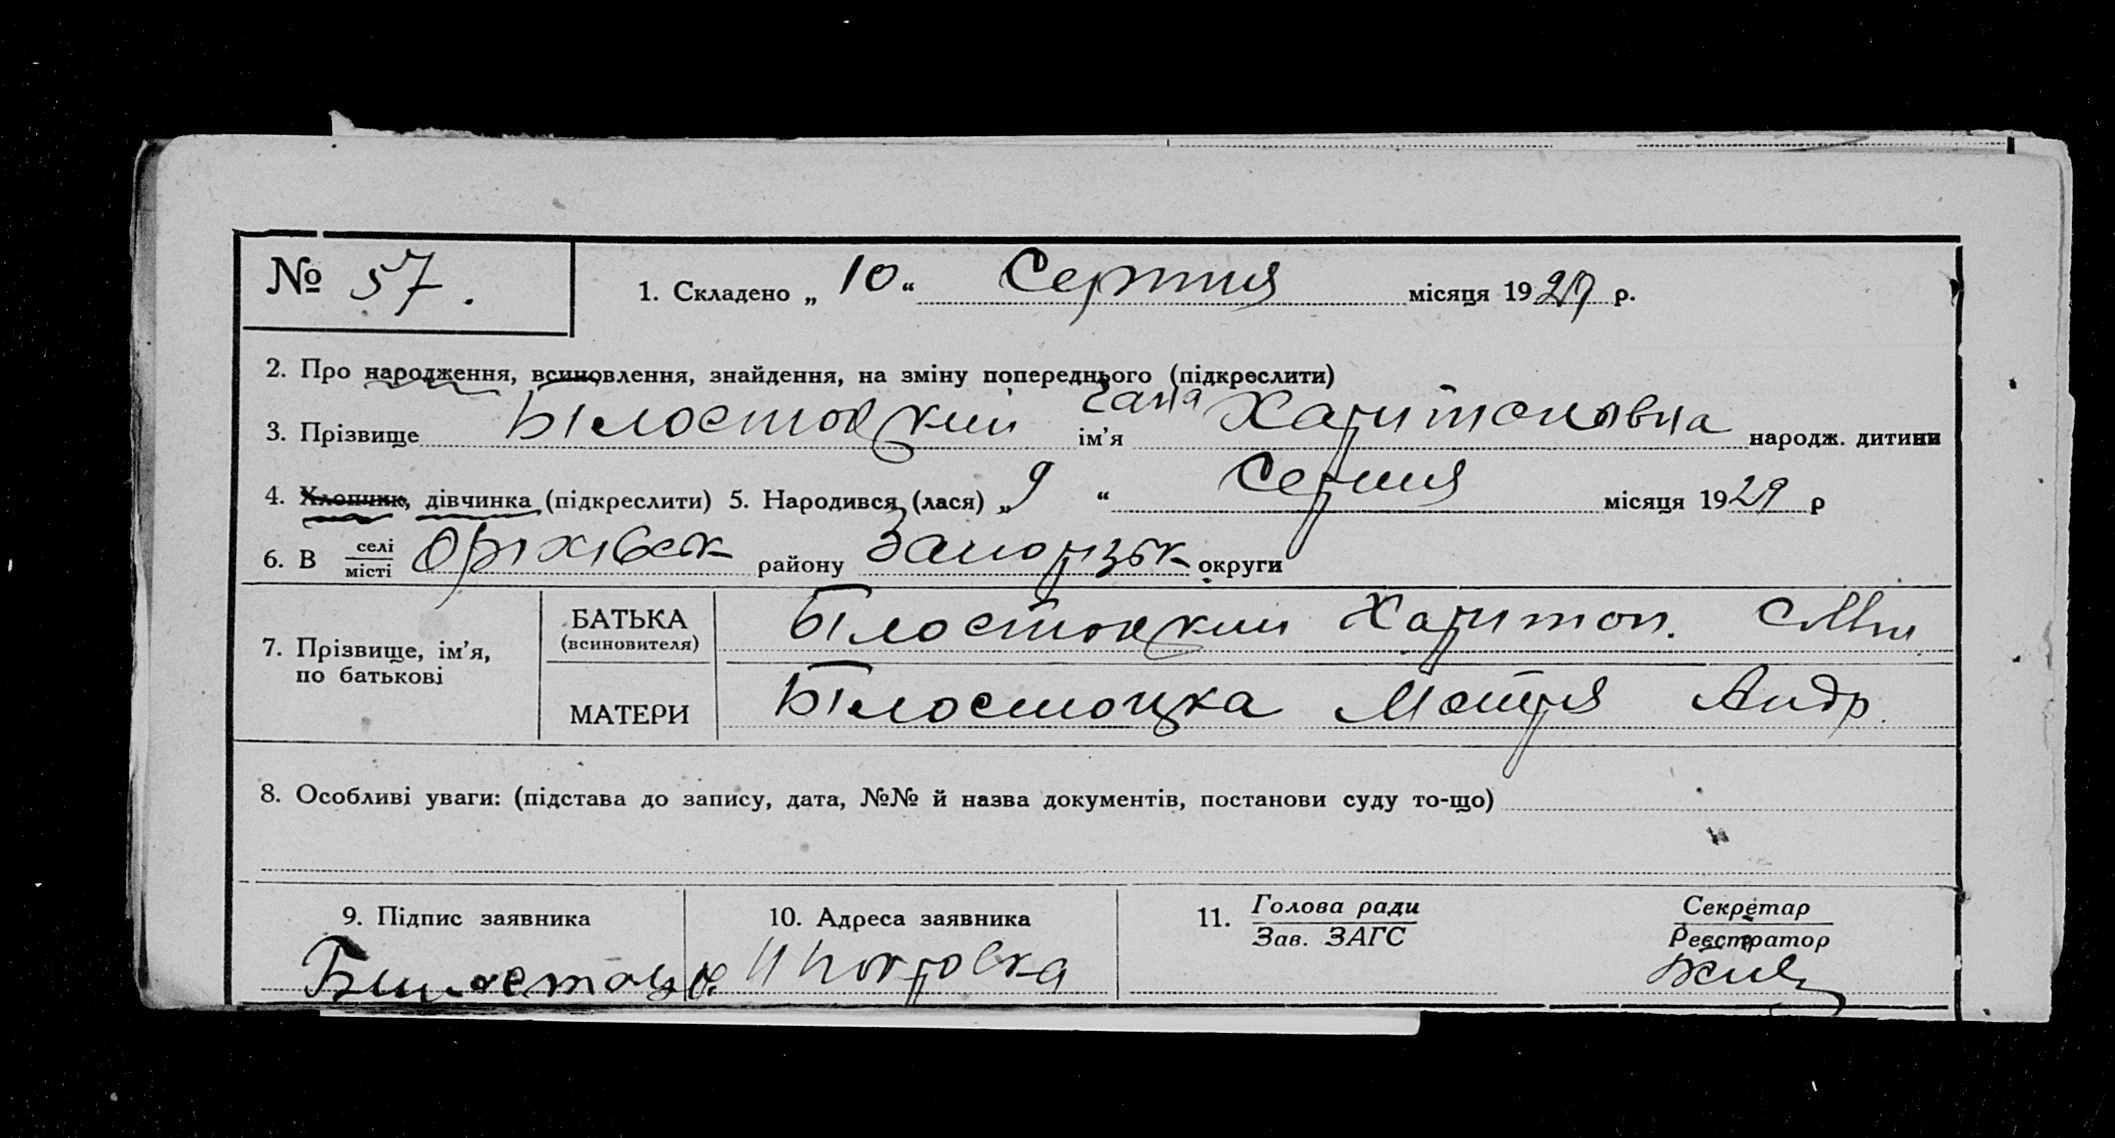 № 57. 1. Складено „ 10 “ Серпня місяця 1929 р.
2. Про народження, всиновлення, знайдення, на зміну попереднього (підкреслити)
3. Прізвище Білостоцкий ім’я Харитоновна народж. дитини
4. Хлопчик, дівчинка (підкреслити) 5. Народився (лася) „ 9 “ Серпня місяця 1929 р
6. В селі
місті Оріхівск району Запорізьк округи
7. Прізвище, ім’я,
по батькові
БАТЬКА
(всиновителя)
Білостоцкий Харитон.
МАТЕРИ
Білостоцка Мотря Андр.
8. Особливі уваги: (підстава до запису, дата, №№ й назва документів, постанови суду то-що)
9. Підпис заявника 10. Адреса заявника 11. Голова ради Секретар
Зав. ЗАГС Реєстратор
Покровка